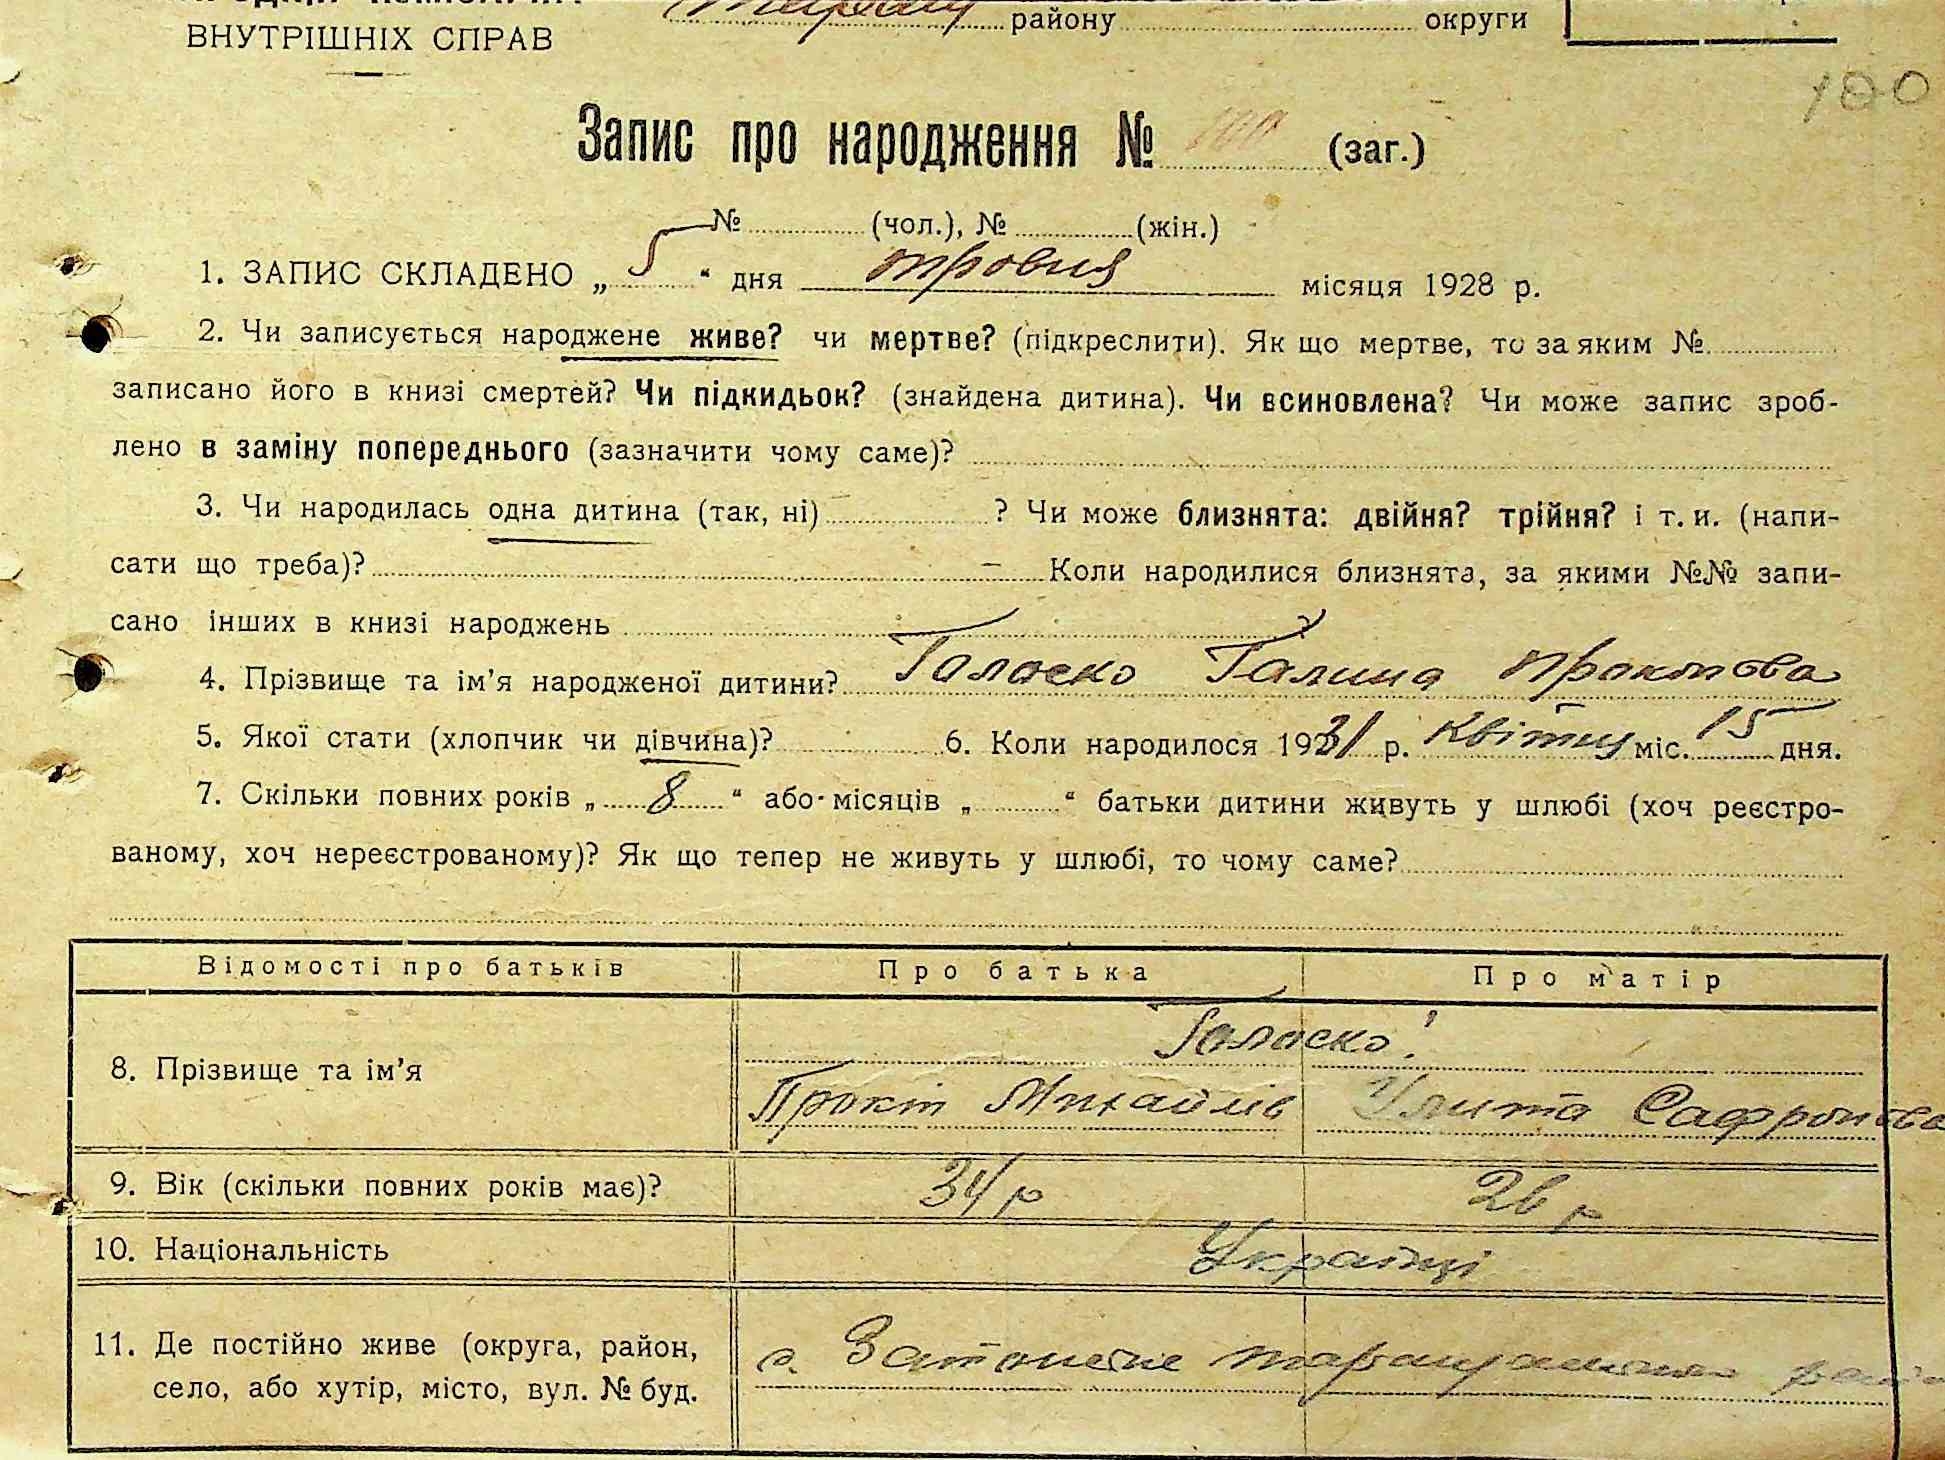 ВНУТРІШНІХ СПРАВ
району округи
100
Запис про народження № 100 (заг.)
№ (чол.), № (жін.)
1. ЗАПИС СКЛАДЕНО „ 5 “ дня травня місяця 1928 р.
2. Чи записується народжене живе? чи мертве? (підкреслити). Як що мертве, то за яким №
записано його в книзі смертей? Чи підкидьок? (знайдена дитина). Чи всиновлена? Чи може запис зроб-
лено в заміну попереднього (зазначити чому саме)?
3. Чи народилась одна дитина (так, ні) ? Чи може близнята: двійня? трійня? і т. и. (напи-
сати що треба)? — Коли народилися близнята, за якими №№ запи-
сано інших в книзі народжень
4. Прізвище та ім’я народженої дитини? Галаско Галина Прокопова
5. Якої стати (хлопчик чи дівчина)? 6. Коли народилося 1931 р. Квітня міс. 15 дня.
7. Скільки повних років „ 8 “ або місяців „ “ батьки дитини живуть у шлюбі (хоч реєстро-
ваному, хоч нереєстрованому)? Як що тепер не живуть у шлюбі, то чому саме?
Відомості про батьків Про батька Про матір
8. Прізвище та ім’я Галаско
Прокіп Михайлів Улита Сафронова
9. Вік (скільки повних років має)? 34 р 26 р
10. Національність Українці
11. Де постійно живе (округа, район,
село, або хутір, місто, вул. № буд.
с.